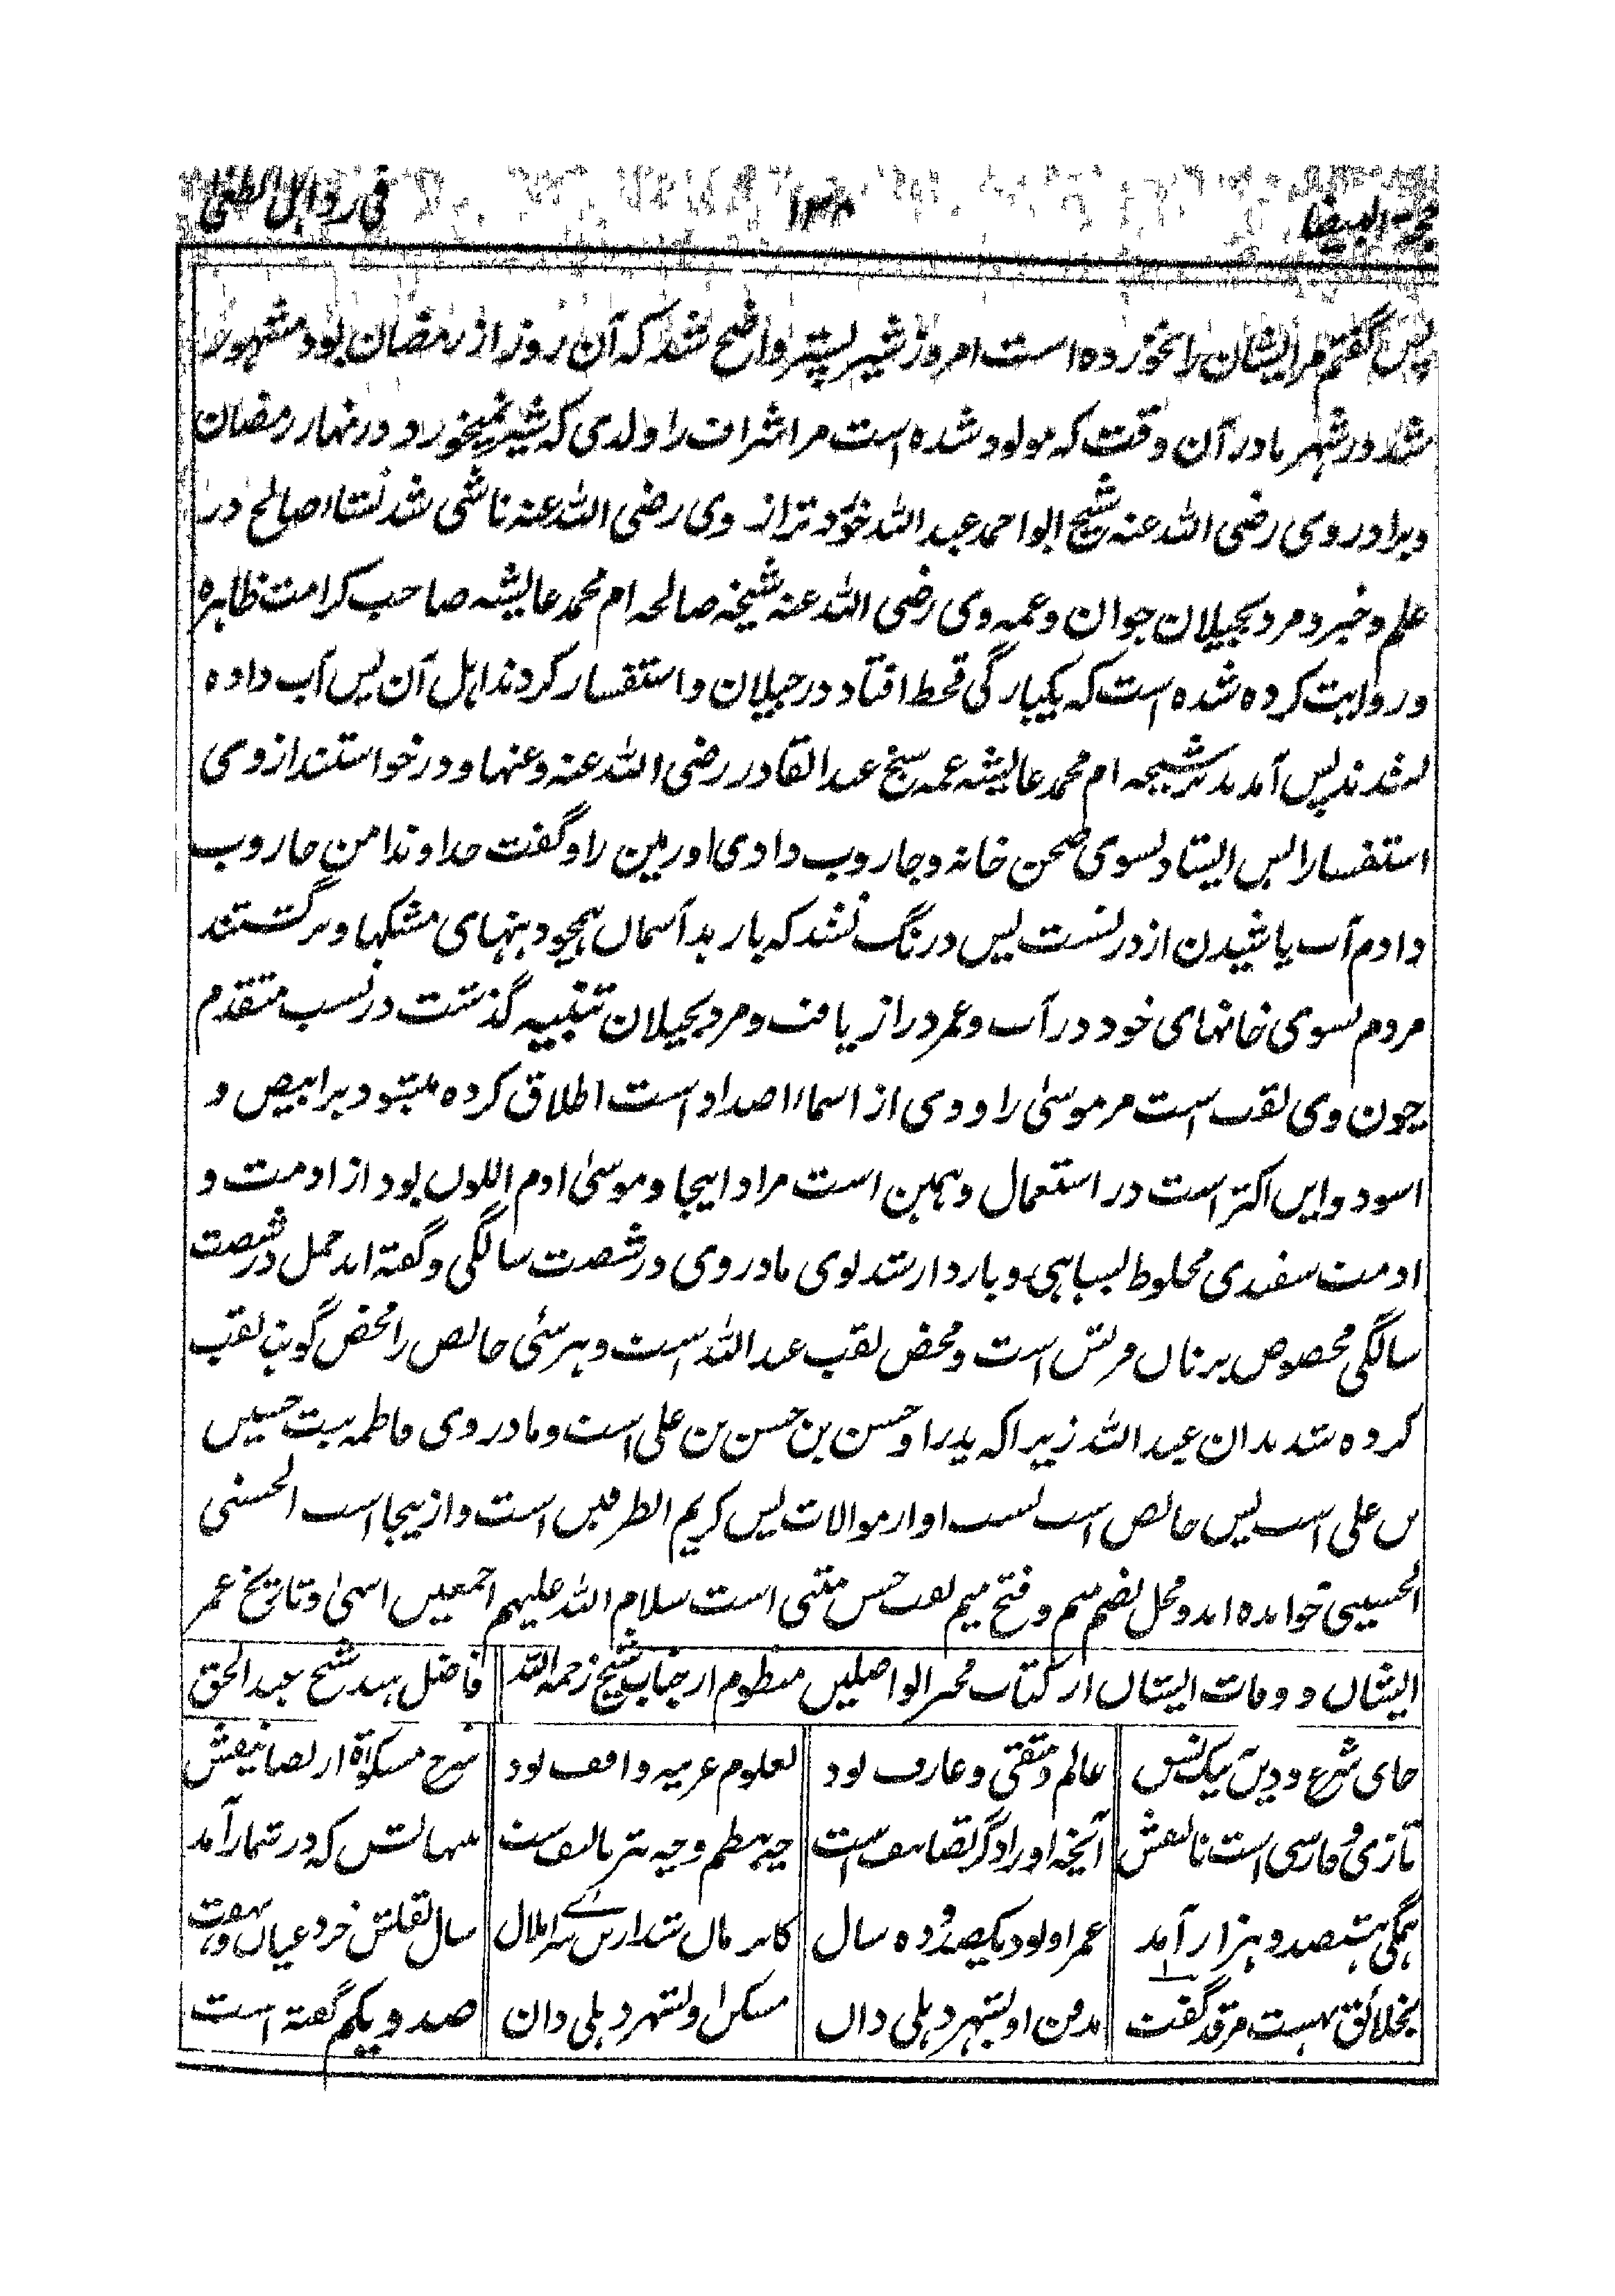 حجة البیضا ۱۳۸ فی رد اہل الطغی
پس گفتم مر ایشان را نخورده است امروز شیر پستر واضح شد که آن روز از رمضان بود مشهور
شد در شهر ما در آن وقت که مولود شده است مر اشراف را ولدی که شیر نمیخورد در نهار رمضان
و برادر وی رضی الله عنه شیخ ابو احمد عبد الله خرد تر از وی رضی الله عنه ناشی شد نشتاا صالح در
علم و خیر و مرد بجیلان جوان و عمه وی رضی الله عنه شیخه صالحه ام محمد عایشه صاحب کرامت ظاهره
و روایت کرده شده است که یکبارگی قحط افتاد در جیلان و استفسار کردند اهل آن پس آب داده
نشدند پس آمدند بر شیخه ام محمد عایشه عمه شیخ عبد القادر رضی الله عنه و عنها و درخواستند از وی
استفسار را پس ایستاد بسوی صحن خانه و جاروب دادی او زمین را و گفت خداوندا من جاروب
دادم آب پاشیدن از در تست پس درنگ نشد که بارید آسمان همچو دهنهای مشکها و برگشتند
مردم بسوی خانهای خود در آب و عمر دراز یافت و مرد بجیلان تنبیه گذشت در نسب متقدم
جون وی لقب است مر موسیٰ را و وی از اسماء اصداد است اطلاق کرده میشود بر ابیض و
اسود و این اکثر است در استعمال و همین است مراد اینجا و موسیٰ ادم اللون بود از ادمت و
ادمت سفیدی مخلوط بسیاهی و باردار شد بوی مادر وی در شصت سالگی و گفته اند حمل در شصت
سالگی مخصوص بزنان قریش است و محض لقب عبد الله است و هر شئی خالص را محض گویند لقب
کرده شد بدان عبد الله زیرا که پدر او حسن بن حسن بن علی است و مادر وی فاطمه بنت حسین
بن علی است پس خالص است نسب او از موالات پس کریم الطرفین است و ازینجا است الحسنی
الحسینی خوانده اند و محل بضم میم و فتح میم لقب حسن مثنی است سلام الله علیهم اجمعین انتهیٰ و تاریخ عمر
ایشان و وفات ایشان از کتاب مخبر الواصلین منظوم از جناب شیخ رحمه الله فاضل هند شیخ عبد الحق
حای شرع و دین نیک نفس عالم و متقی و عارف بود بعلوم عربیه واقف بود شرح مشکوٰة از تصانیفش
تازی و فارسی است تالیفش آنچه او را دگر تصانیف است چه بنظم و چه نثر تالیف است سالش که در شمار آمد
همگی هشتصد و هزار آمد عمر او بود یکصد و ده سال سال نقلش خرد عیان و نهفت
بخلائق بهشت مرقد گفت مدفن او بشهر دهلی دان مسکن او بشهر دهلی دان صد و یکم گفته است